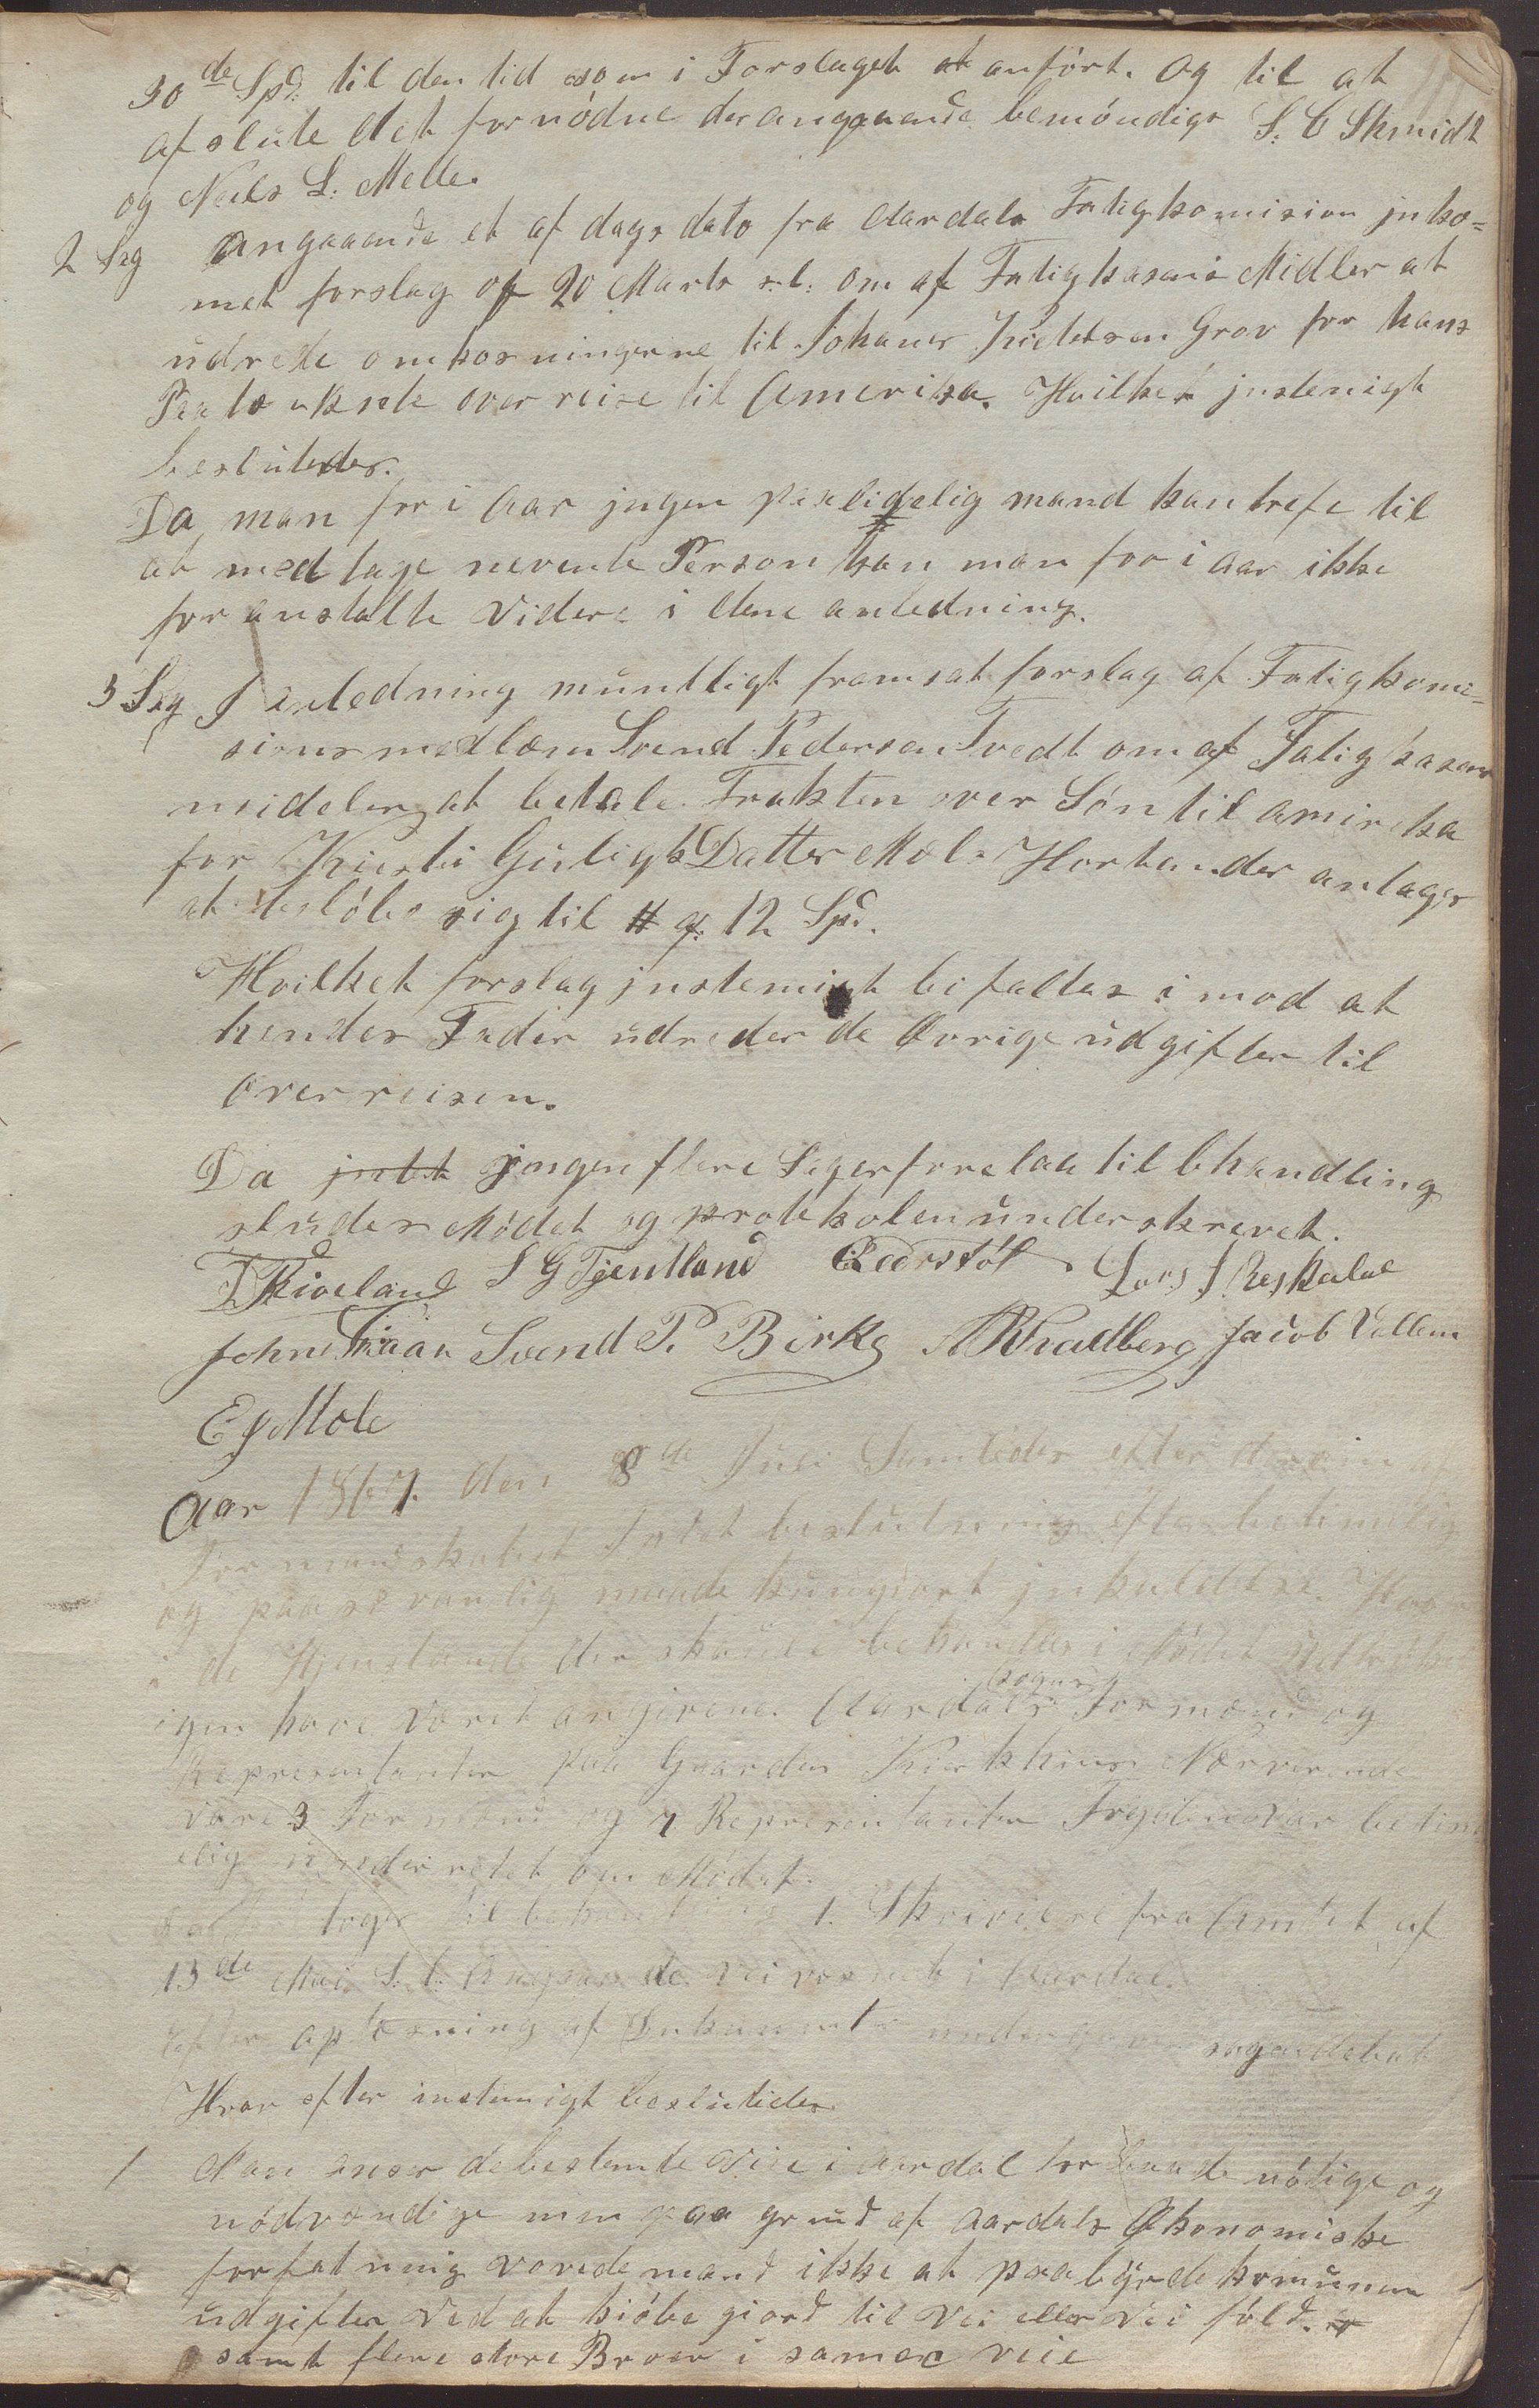 30de Spd: til den tid som i Forslaget er anført. Og til at
afslute det fornødne derangaaende bemøndiges S. C Skmidt
og Neils L. Melle.
2 Sag Angaaende et af dags dato fra Aardals Fatigkomision jnko=
met forslag of 20 Marts s.l: om af Fatigkasens Midler at
udrede omkosningerne til Johanes Grov for hans
Paatænkte over reise til Amerika. Hvilket jnstemigt
beslutedes.
Da man for i Aar jngen paalidelig mand kan trefe til
at medtage nevnte Person kan man for i aar ikke
foranstalte videre i dene anledning.
3 Sag I anledning muntligt framsat forslag af Fatigkomi=
sions medlem Svend Pedersen Tvedt om af Fatigkasens
meideler at betale Frakten over Søn til amireka
for Kirsti Guligks Datter Mæle Hortender antages
at beløbe sig til 11 a: 12 Spd.
Hvilket forslag jnstemigt bifaltes imod at
hendes Fader udreder de Øvrige udgifter til
Overreisen.
Da jntet jngen flere Seger forelaa til bhandling
sluder Mødet og protokolen underskrevet.
T Riveland S G Tjentland Lars J. Reskeland
John Svend P. Birke Jacob Vellem
E J Mele
Aar 1867. den 8de Juli Samledes efter
Formandskabet Fatet beslutning efter betimelig
og paa sedvanlig maade kungjort jnkaldelse. Hvor
i de Gjenstande der skulle behandles i Mødet
igen have været angivene. Aardals sogns Formænd og
Representanter paa Gaarden Kirkhus Nærverende
vare 3 Formænd og 7 Representanter Fogden var betim
elig underretet om Mødet.
toges til behandling 1. Skrivelse fra Amtet af
13de Mai S. l. Angaaende veivæsnet i Aardal.
Efter oplæsning af Dokumenter sagen debat
Hvor efter instemigt beslutedes
1 Man anser de bestemte Veie i Aardal for baade nøtige og
nødvendige men paa grund af Aardals Økonomiske
forfatning vovede mand ikke at paabyrde komunen
udgifter ved at kiøbe giord til Vei eller Vei føld.
samt flere store Broer i samere veie